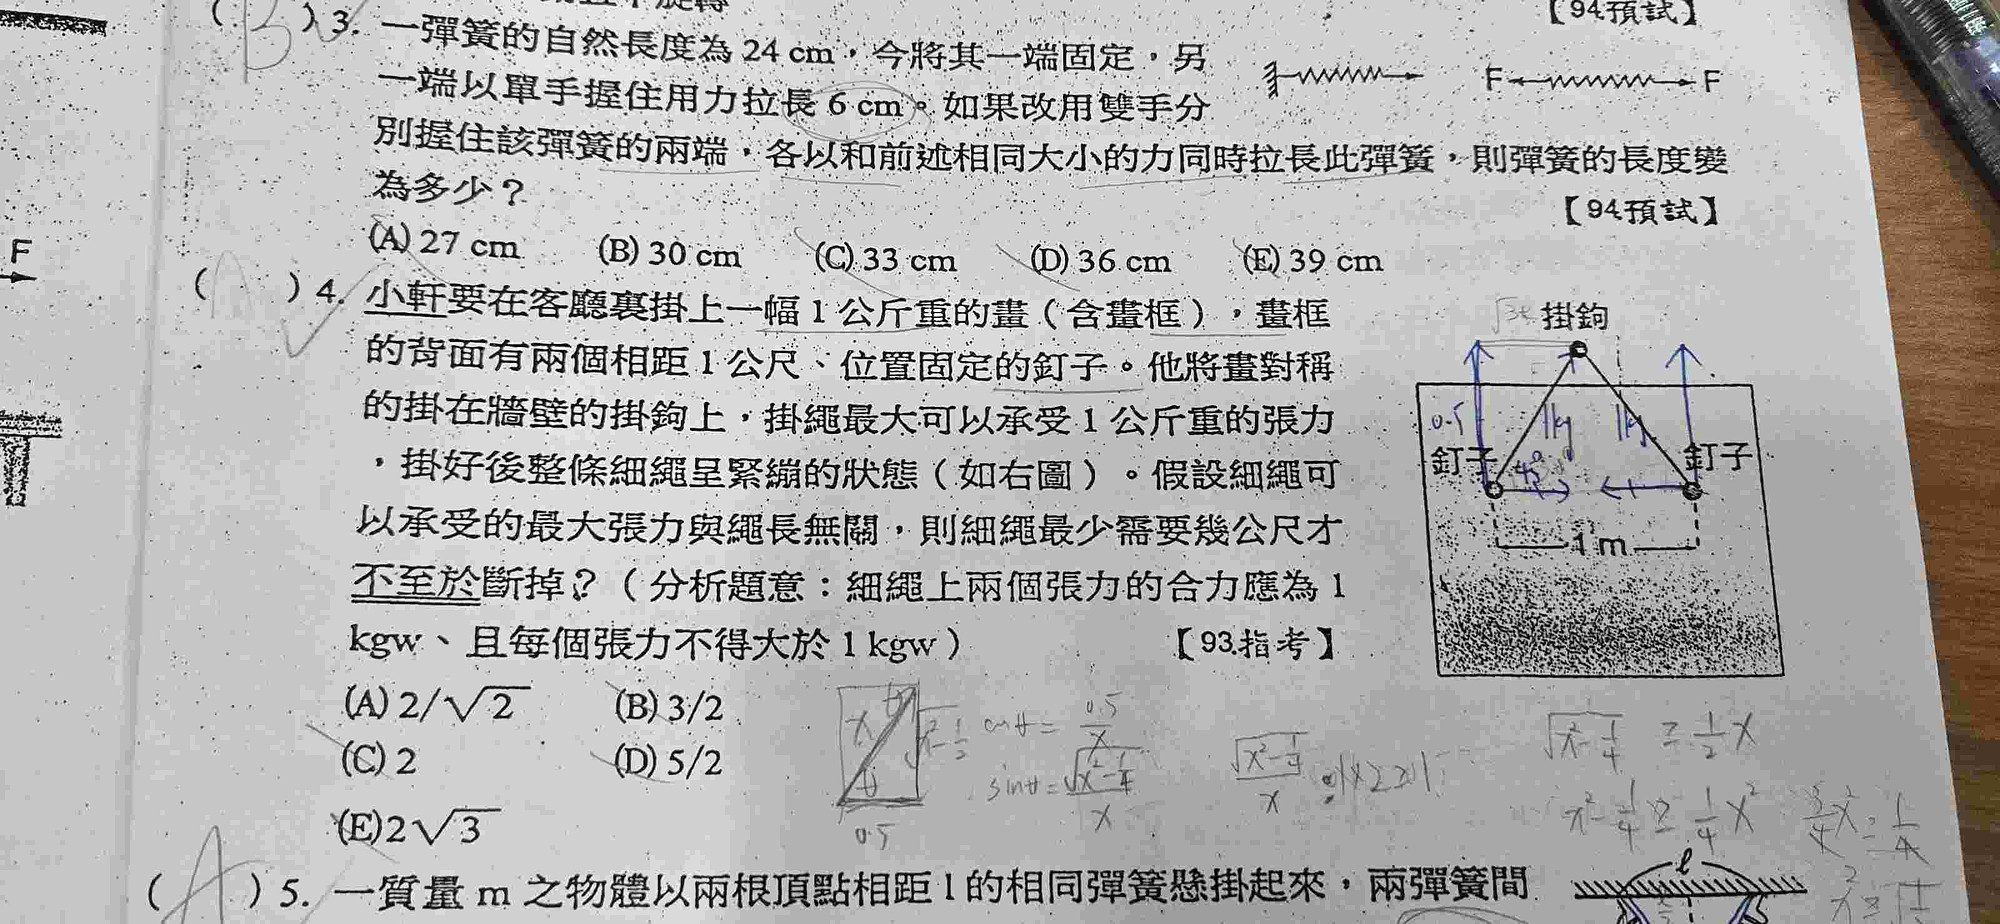 【94.預試】
(B)3. 一彈簧的自然長度為 24 cm，今將其一端固定，另
一端以單手握住用力拉長 6 cm。如果改用雙手分
別握住該彈簧的兩端，各以和前述相同大小的力同時拉長此彈簧，則彈簧的長度變
為多少？
【94.預試】
F F
(A) 27 cm (B) 30 cm (C) 33 cm (D) 36 cm (E) 39 cm
F
(A)4. 小軒要在客廳裏掛上一幅 1 公斤重的畫（含畫框），畫框
的背面有兩個相距 1 公尺、位置固定的釘子。他將畫對稱
的掛在牆壁的掛鉤上，掛繩最大可以承受 1 公斤重的張力
，掛好後整條細繩呈緊繃的狀態（如右圖）。假設細繩可
以承受的最大張力與繩長無關，則細繩最少需要幾公尺才
不至於斷掉？（分析題意：細繩上兩個張力的合力應為 1
kgw、且每個張力不得大於 1 kgw）
【93.指考】
掛鉤
0.5 1kg 1kg
釘子 釘子
45°
1 m
(A) 2/√2 (B) 3/2
(C) 2 (D) 5/2
(E) 2√3
x θ
0.5
cosθ = 0.5/x
sinθ = √(x²-1/4)/x
√(x²-1/4) ≥ 1/2 x
x²-1/4 ≥ 1/4 x²
(A)5. 一質量 m 之物體以兩根頂點相距 l 的相同彈簧懸掛起來，兩彈簧間
ℓ